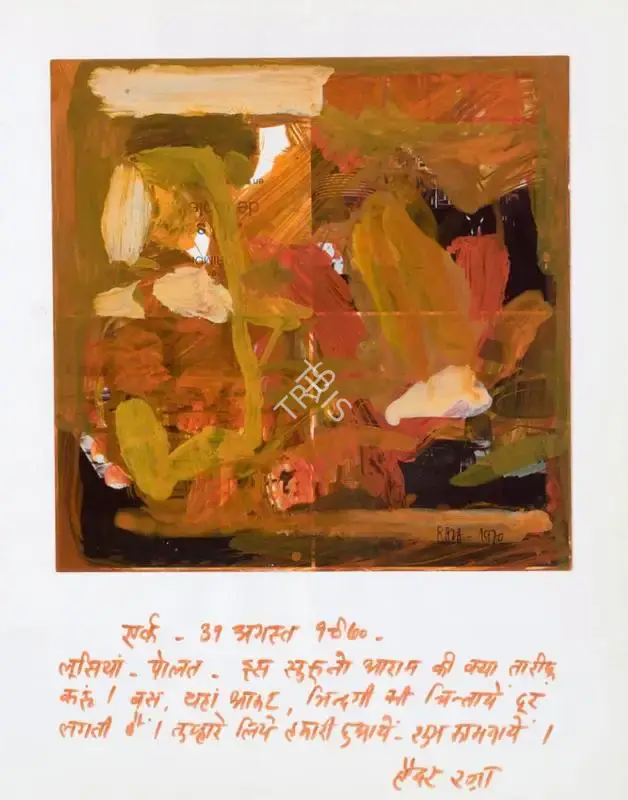 TRIBIS
RAZA - 1970
सर्क - 31 अगस्त १९७० -
लूसियां - पोलत - इस सुकूनो आराम की क्या तारीफ
करूं ! बस, यहां आकर, जिन्दगी की चिन्तायें दूर
लगती हैं । तुम्हारे लिये हमारी दुआयें - शुभ कामनायें ।
हैदर रज़ा